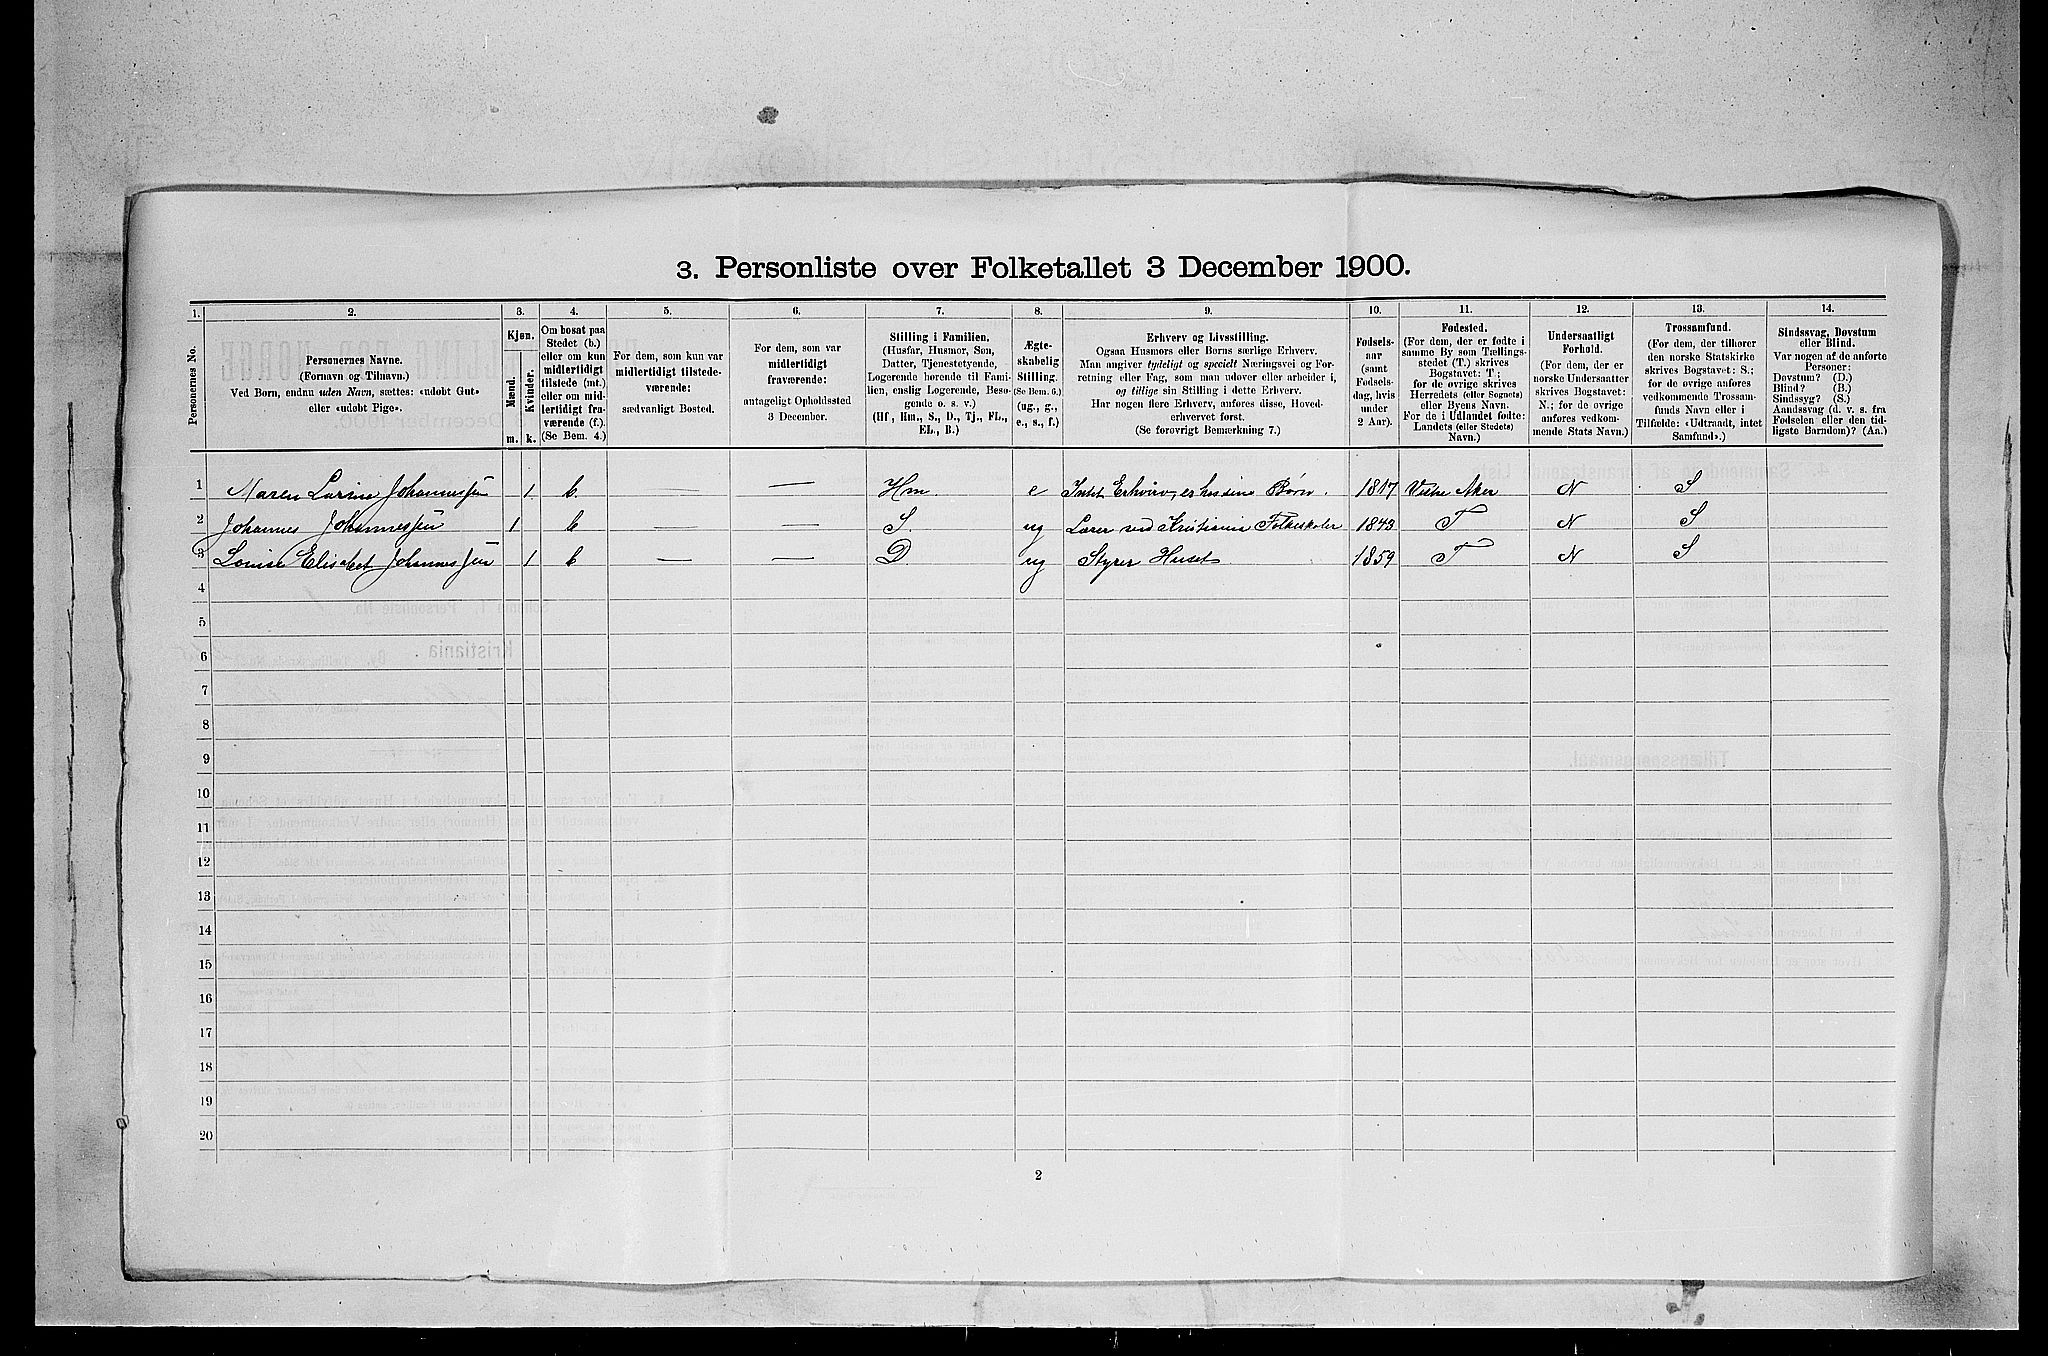 3. Personliste over Folketallet 3 December 1900.
1. 2. 3. 4. 5. 6. 7. 8. 9. 10. 11. 12. 13. 14.
Personernes No.
Personernes Navne.
(Fornavn og Tilnavn.)
Ved Børn, endnu uden Navn, sættes: «udøbt Gut»
eller «udøbt Pige».
Kjøn.
Mænd.
Kvinder.
m. k.
Om bosat paa
Stedet (b.)
eller om kun
midlertidigt
tilstede (mt.)
eller om mid-
lertidigt fra-
værende (f.).
(Se Bem. 4.)
For dem, som kun var
midlertidigt tilstede-
værende:
sædvanligt Bosted.
For dem, som var
midlertidigt
fraværende:
antageligt Opholdssted
3 December.
Stilling i Familien.
(Husfar, Husmor, Søn,
Datter, Tjenestetyende,
Logerende hørende til Fami-
lien, enslig Logerende, Besø-
gende o. s. v.)
(Hf, Hm., S., D., Tj., FL.,
EL., B.)
Ægte-
skabelig
Stilling.
(Se Bem. 6.)
(ug., g.,
e., s., f.)
Erhverv og Livsstilling.
Ogsaa Husmors eller Børns særlige Erhverv.
Man angiver tydeligt og specielt Næringsvei og For-
retning eller Fag, som man udøver eller arbeider i,
og tillige sin Stilling i dette Erhverv.
Har nogen flere Erhverv, anføres disse, Hoved-
erhvervet først.
(Se forøvrigt Bemærkning 7.)
Fødsels-
aar
(samt
Fødsels-
dag, hvis
under
2 Aar).
Fødested.
(For dem, der er fødte i
samme By som Tællings-
stedet (T.) skrives
Bogstavet: T;
for de øvrige skrives
Herredets (eller Sognets)
eller Byens Navn.
For de i Udlandet fødte:
Landets (eller Stedets)
Navn.)
Undersaatligt
Forhold.
(For dem, der er
norske Undersaatter
skrives Bogstavet:
N.; for de øvrige
anføres vedkom-
mende Stats Navn.)
Trossamfund.
(For dem, der tilhører
den norske Statskirke
skrives Bogstavet: S.;
for de øvrige anføres
vedkommende Trossam-
funds Navn eller i
Tilfælde: «Udtraadt, intet
Samfund».)
Sindssvag, Døvstum
eller Blind.
Var nogen af de anførte
Personer:
Døvstum? (D.)
Blind? (B.)
Sindssyg? (S.)
Aandssvag (d. v. s. fra
Fødselen eller den tid-
ligste Barndom)? (Aa.)
1 Maren Larine Johannessen 1 b. — — Hm. e Intet Erhverv, er hos sine Børn. 1817 Vestre Aker N S
2 Johannes Johannessen 1 b — — S. ug Lærer ved Kristiania Folkeskoler 1843 T N S
3 Louise Elisabet Johannessen 1 b — — D. ug Styrer Huset 1859 T N S
4
5
6
7
8
9
10
11
12
13
14
15
16
17
18
19
20
2